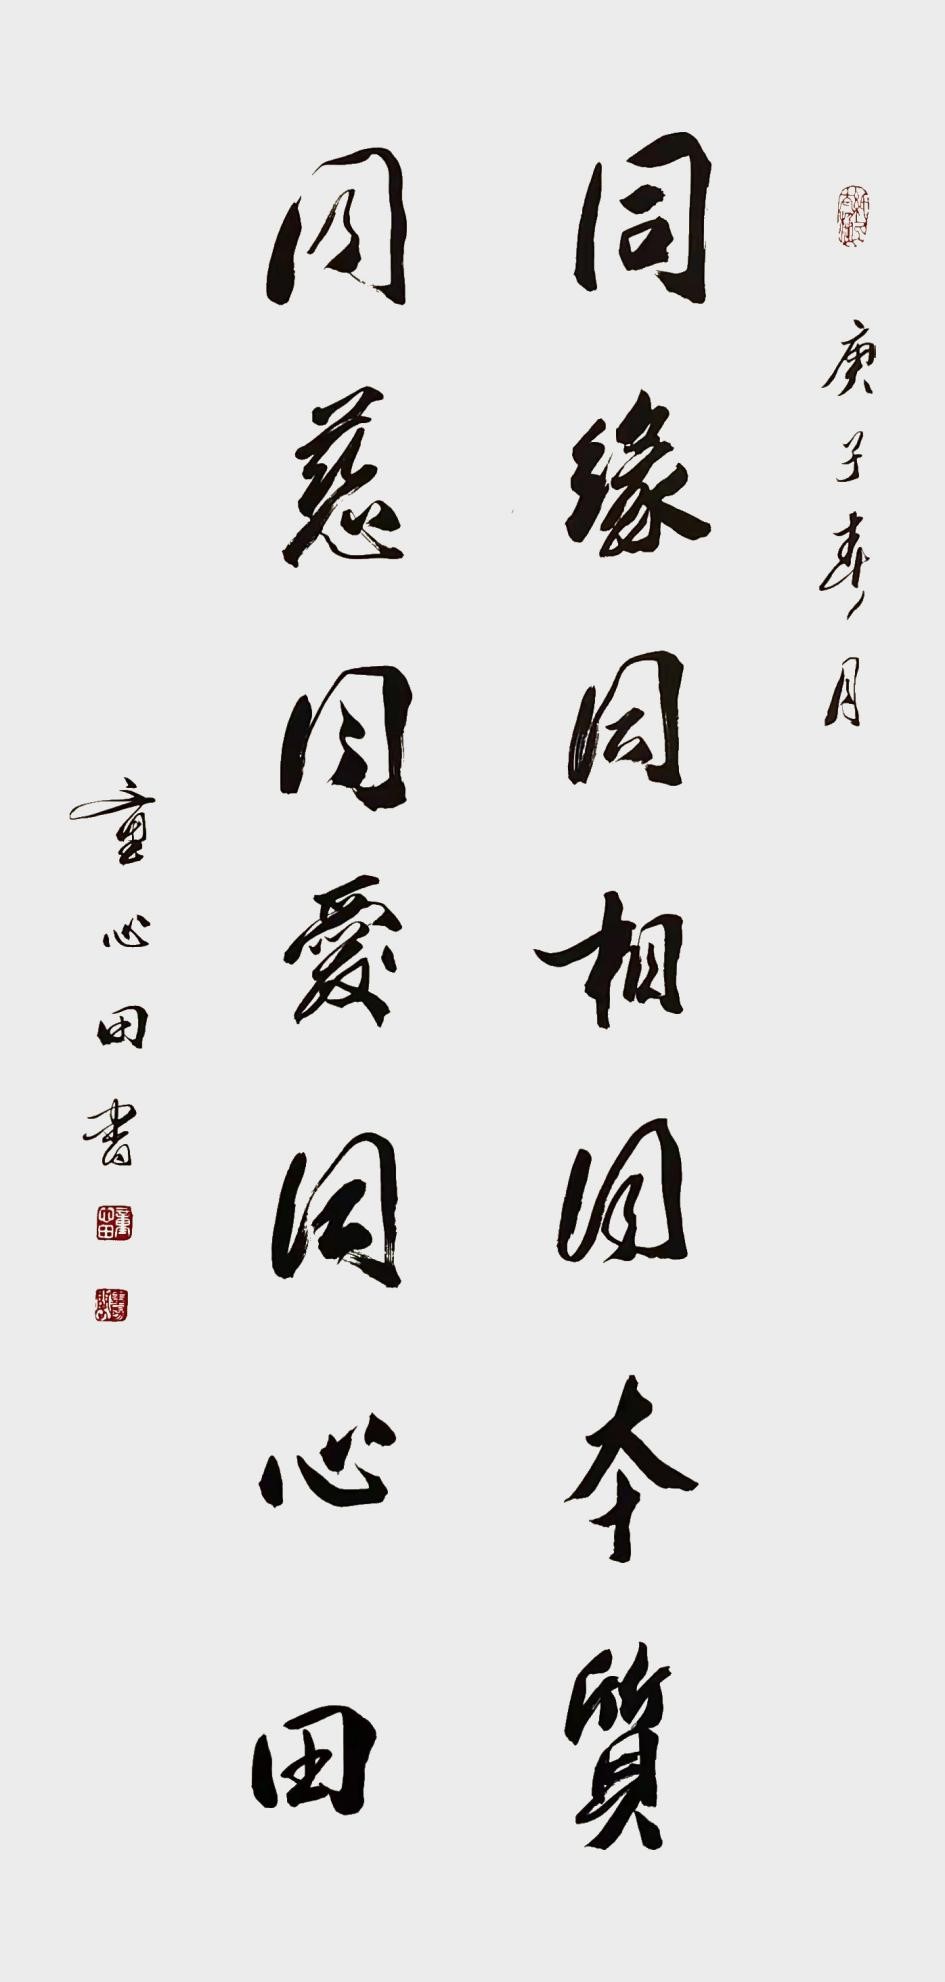 庚子春月
同緣同相同本質
同慈同愛同心田
童心田書
童心田